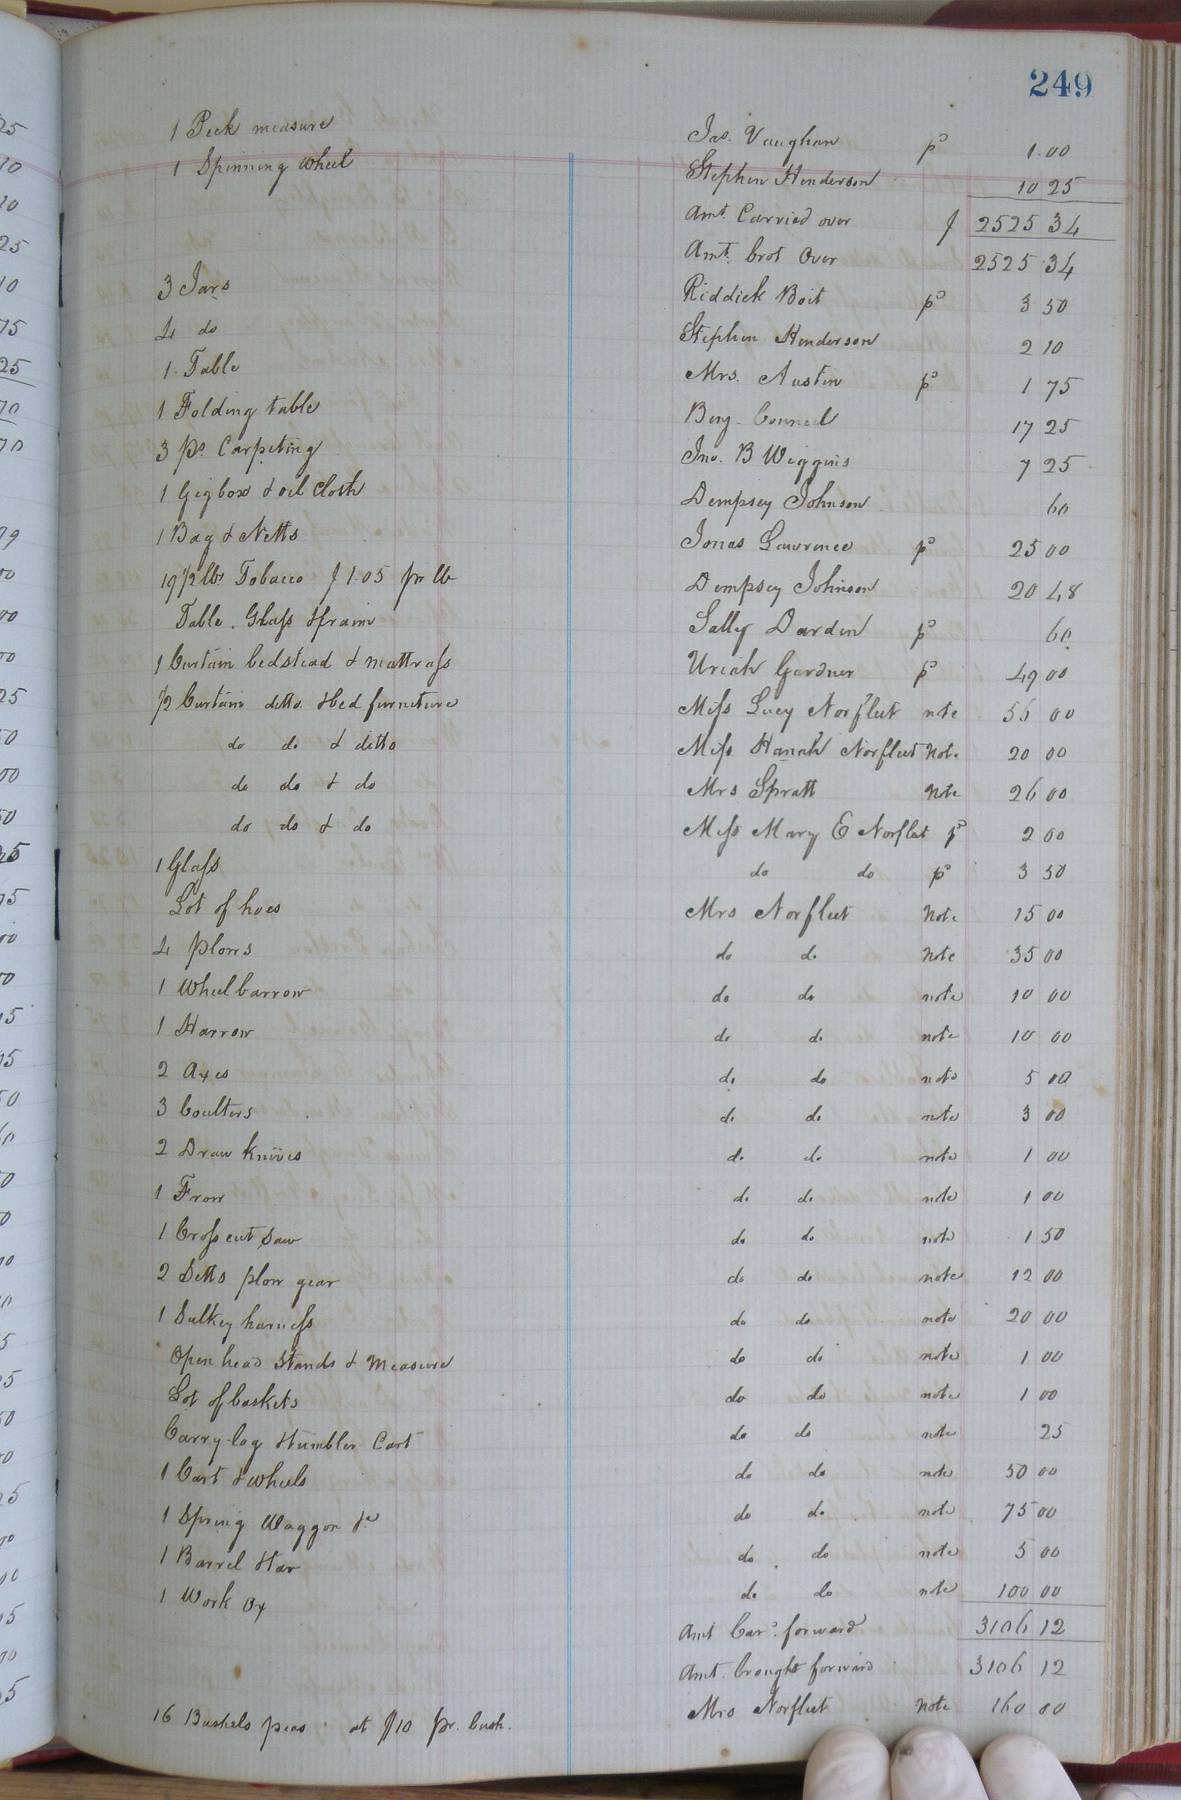 249
1 Peck measure Jas. Vaughan pd 1.00
1 Spinning Wheel Stephen Henderson 10 25
Amt. Carried over $ 2525 34
Amt. brot Over 2525 34
3 Jars Riddick Boit pd 3 50
4 do Stephen Henderson 2 10
1 Table Mrs. Austin pd 1 75
1 Folding table Benj. Council 17 25
3 ps. Carpeting Jno. B Wiggins 7 25
1 Gigbox & oil Cloth Dempsey Johnson 60
1 Bag & Netts Jonas Lawrence pd 25 00
19 1/2 lbs Tobacco $1.05 pr lb Dempsey Johnson 20 48
Table. Glass & frame Sally Darden pd 60
1 Curtain bedstead & mattrass Uriah Gardner pd 49 00
1/2 Curtain ditto. & bed furniture Miss Lucy Norfleet note 56 00
do do & ditto Miss Hanah Norfleet Note 20 00
do do & do Mrs Spratt Note 26 00
do do & do Miss Mary E Norfleet pd 2 00
1 Glass do do pd 3 50
Lot of hoes Mrs Norfleet Note 15 00
4 Plows do do Note 35 00
1 Wheelbarrow do do note 10 00
1 Harrow do do note 10 00
2 Axes do do note 5 00
3 Coulters do do note 3 00
2 Draw knives do do note 1 00
1 Frow do do note 1 00
1 Cross cut Saw do do note 1 50
2 Setts plow gear do do note 12 00
1 Sulkey harness do do note 20 00
Open head Stands & Measure do do note 1 00
Lot of baskets do do note 1 00
Carry-log & tumbler Cart do do note 25
1 Cart & wheels do do note 50 00
1 Spring Waggon &c do do note 75 00
1 Barrel & tar do do note 5 00
1 Work Ox do do note 100 00
Amt Card. forward 3106 12
Amt. brought forward 3106 12
16 Bushels peas at $10 pr. bush. Mrs Norfleet Note 160 00